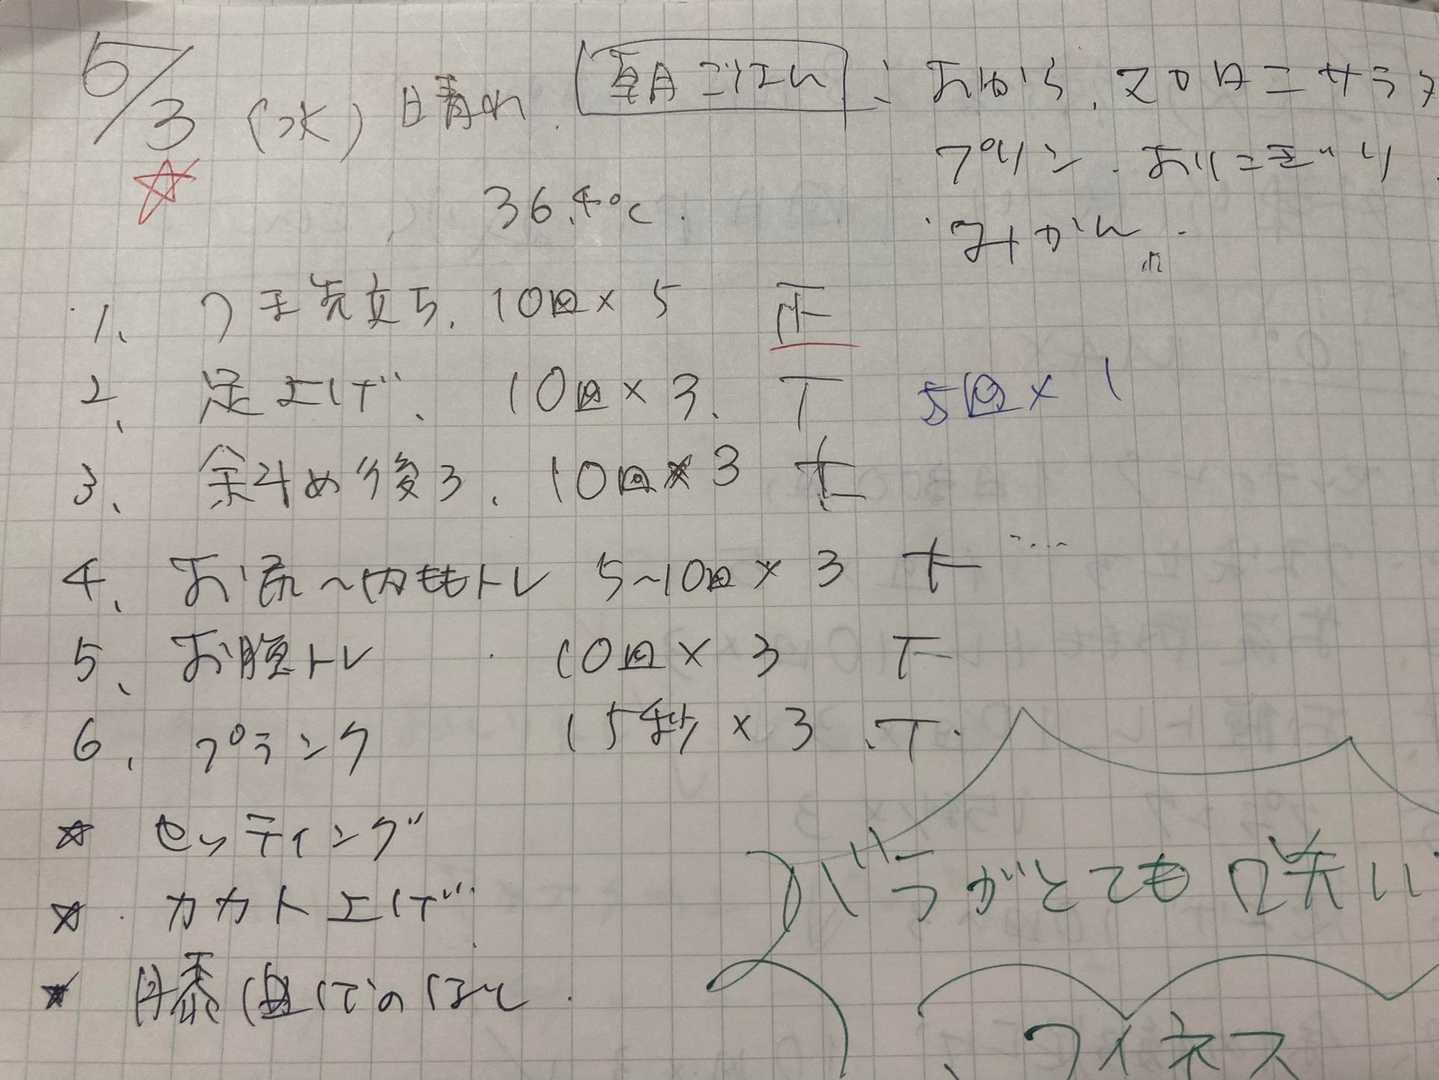 5/3 (水) 晴れ 朝ごはん : おから、マカロニサラダ
プリン、おにぎり
36.4℃. みかん
1、つま先立ち、10回×5 正
2、足上げ、10回×3、T 5回×1
3、斜め後ろ、10回×3
4、お尻〜内ももトレ 5~10回×3
5、お腹トレ 10回×3 下
6、プランク 15秒×3 T
☆ セッティング
☆ カカト上げ
★ 膝(皿)
バラがとても咲い
フィネス